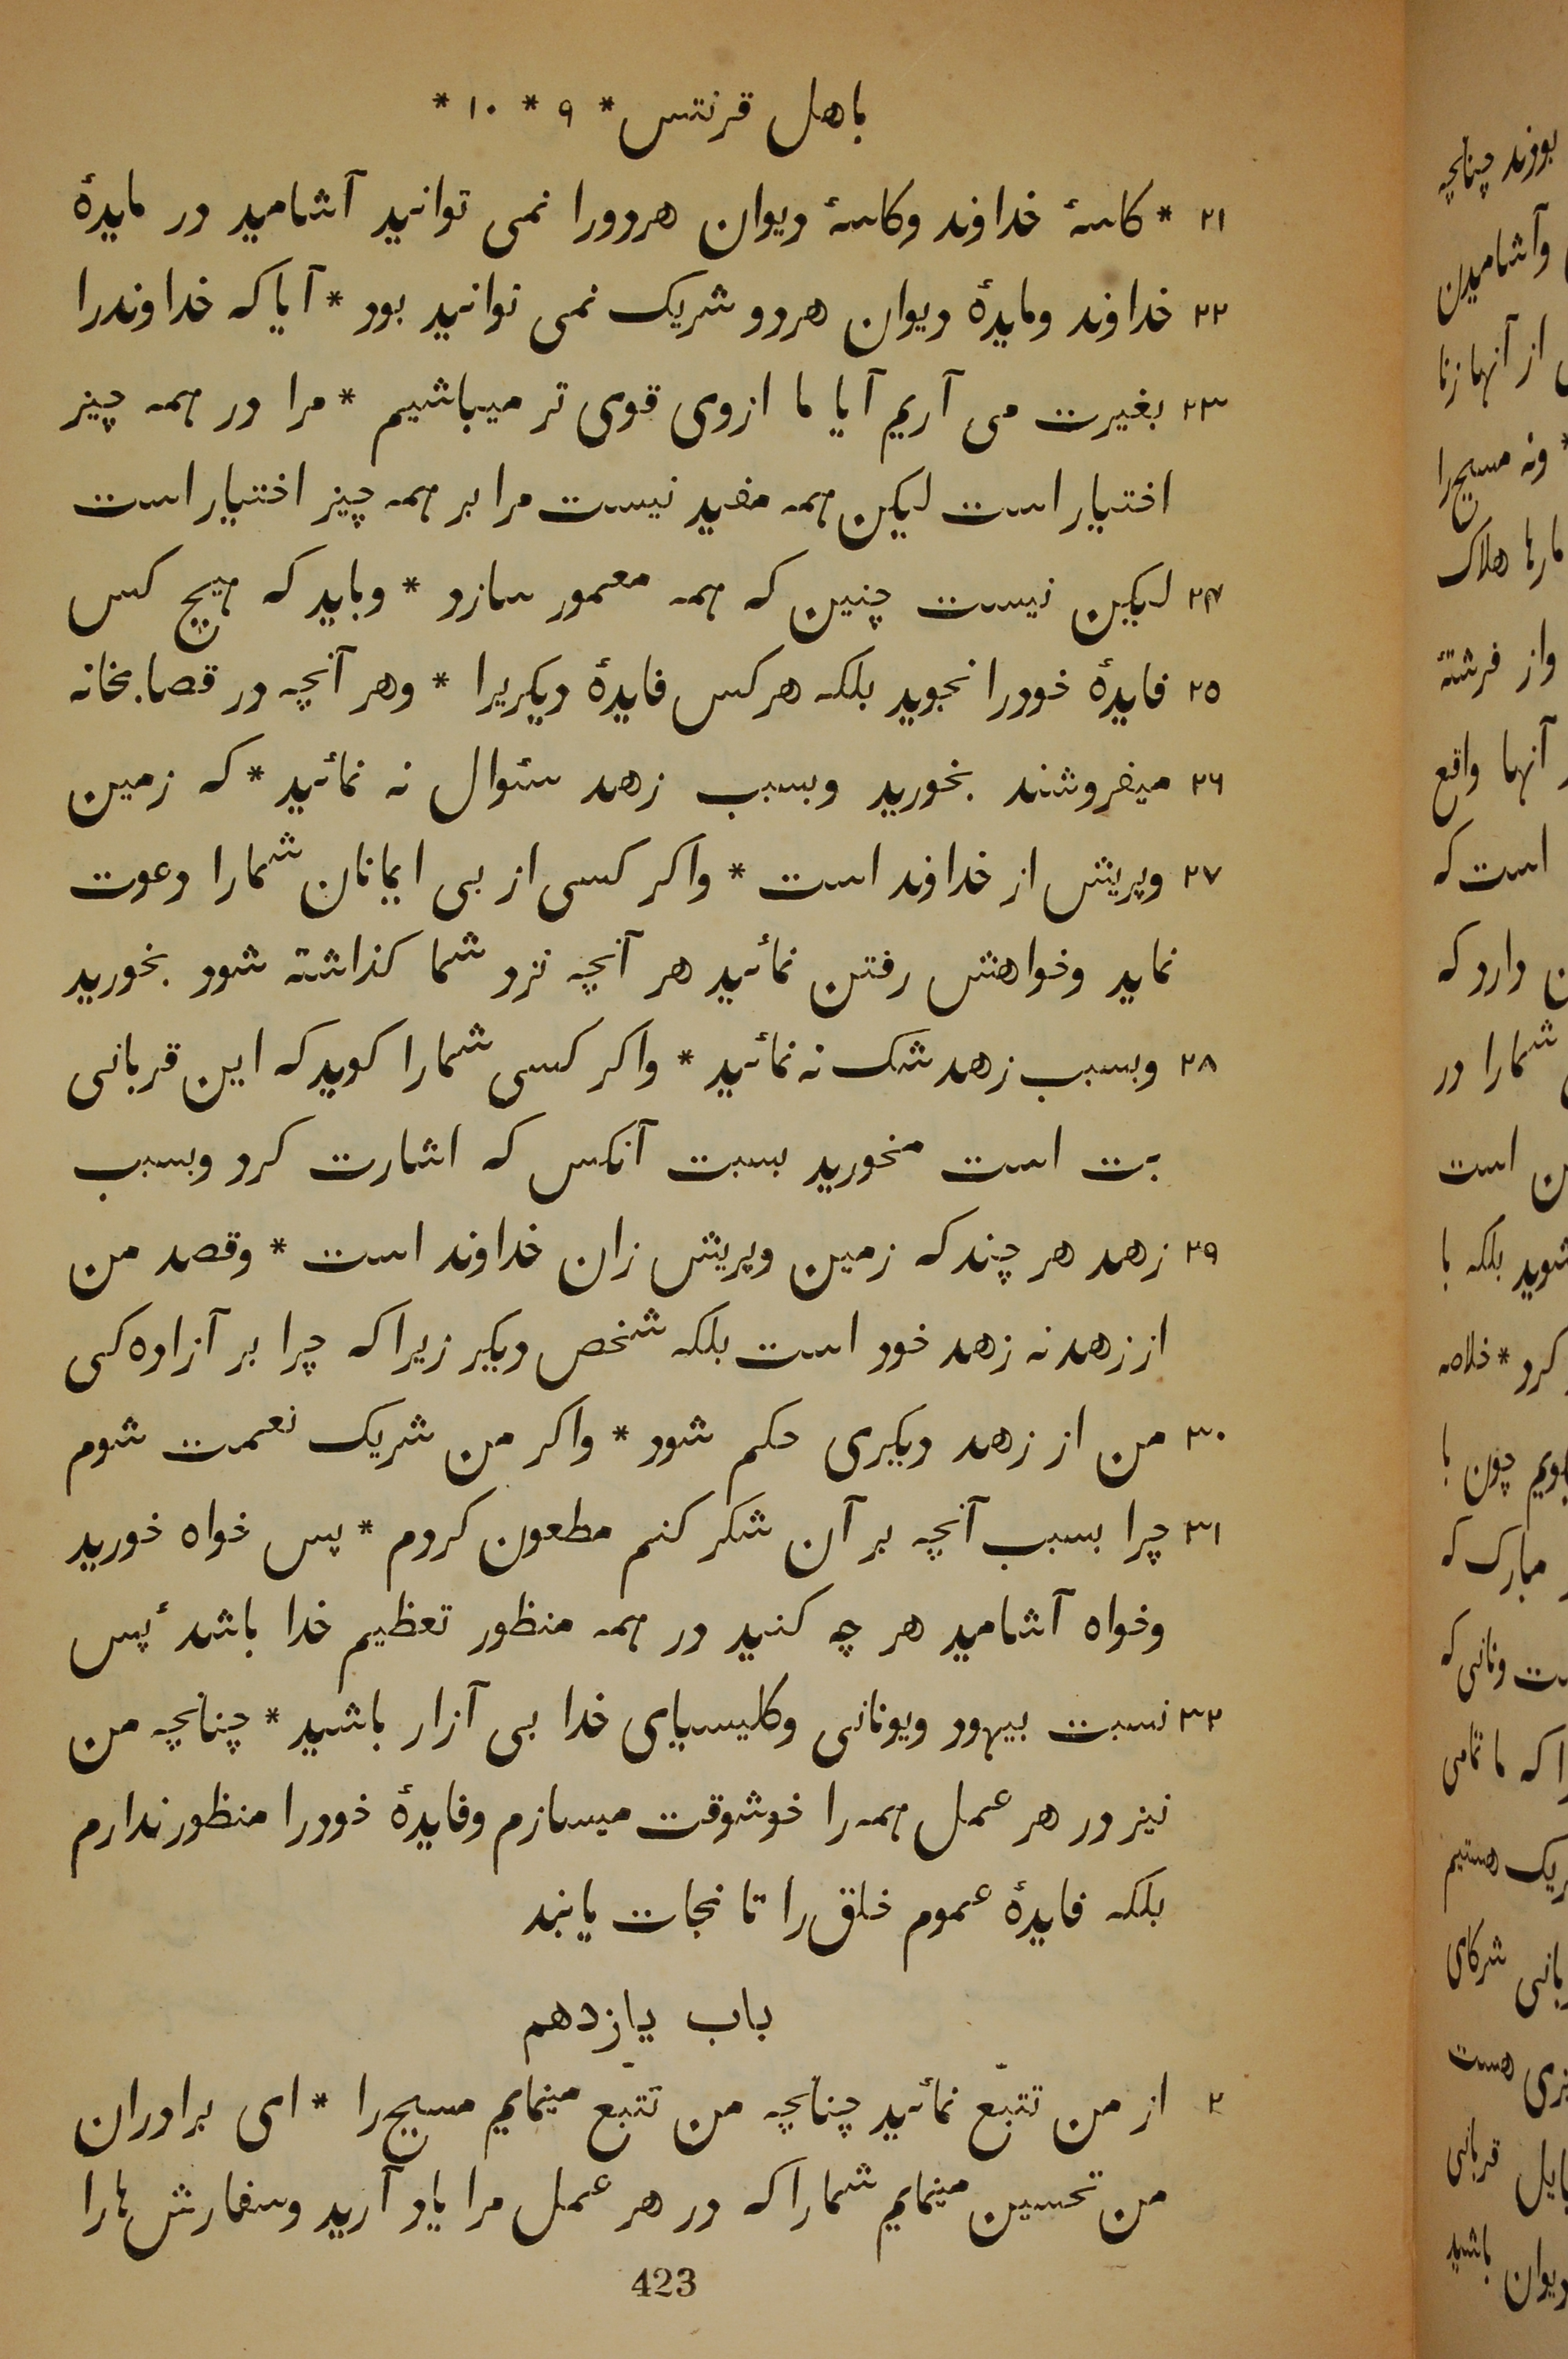 باهل قرنتس * ۹ * ۱۰ *
۲۱ * کاسهٔ خداوند وکاسهٔ دیوان هردورا نمی توانید آشامید در مایدهٔ
۲۲ خداوند ومایدهٔ دیوان هردو شریک نمی توانید بود * آیا که خداوندرا
۲۳ بغیرت می آریم آیا ما ازوی قوی تر میباشیم * مرا در همه چیز
اختیار است لیکن همه مفید نیست مرا بر همه چیز اختیار است
۲۴ لیکن نیست چنین که همه معمور سازد * وباید که هیچ کس
۲۵ فایدهٔ خودرا نجوید بلکه هرکس فایدهٔ دیکریرا * وهر آنچه در قصابخانه
۲۶ میفروشند بخورید وبسبب زهد سئوال نه نمائید * که زمین
۲۷ وپریش از خداوند است * واکر کسی از بی ایمانان شمارا دعوت
نماید وخواهش رفتن نمائید هر آنچه نزد شما کذاشته شود بخورید
۲۸ وبسبب زهد شک نه نمائید * واکر کسی شمارا کوید که این قربانی
بت است مخورید بسبت آنکس که اشارت کرد وبسبب
۲۹ زهد هر چند که زمین وپریش زان خداوند است * وقصد من
از زهد نه زهد خود است بلکه شخص دیکر زیرا که چرا بر آزاده کی
۳۰ من از زهد دیکری حکم شود * واکر من شریک نعمت شوم
۳۱ چرا بسبب آنچه بر آن شکر کنم مطعون کردم * پس خواه خورید
وخواه آشامید هر چه کنید در همه منظور تعظیم خدا باشد ٔ پس
۳۲ نسبت بیهود ویونانی وکلیسیای خدا بی آزار باشید * چنانچه من
نیز در هر عمل همه را خوشوقت میسازم وفایدهٔ خودرا منظور ندارم
بلکه فایدهٔ عموم خلق را تا نجات یابند
باب یازدهم
۲ از من تتبّع نمائید چنانچه من تتبّع مینمایم مسیح را * ای برادران
من تحسین مینمایم شمارا که در هر عمل مرا یاد آرید وسفارش هارا
423